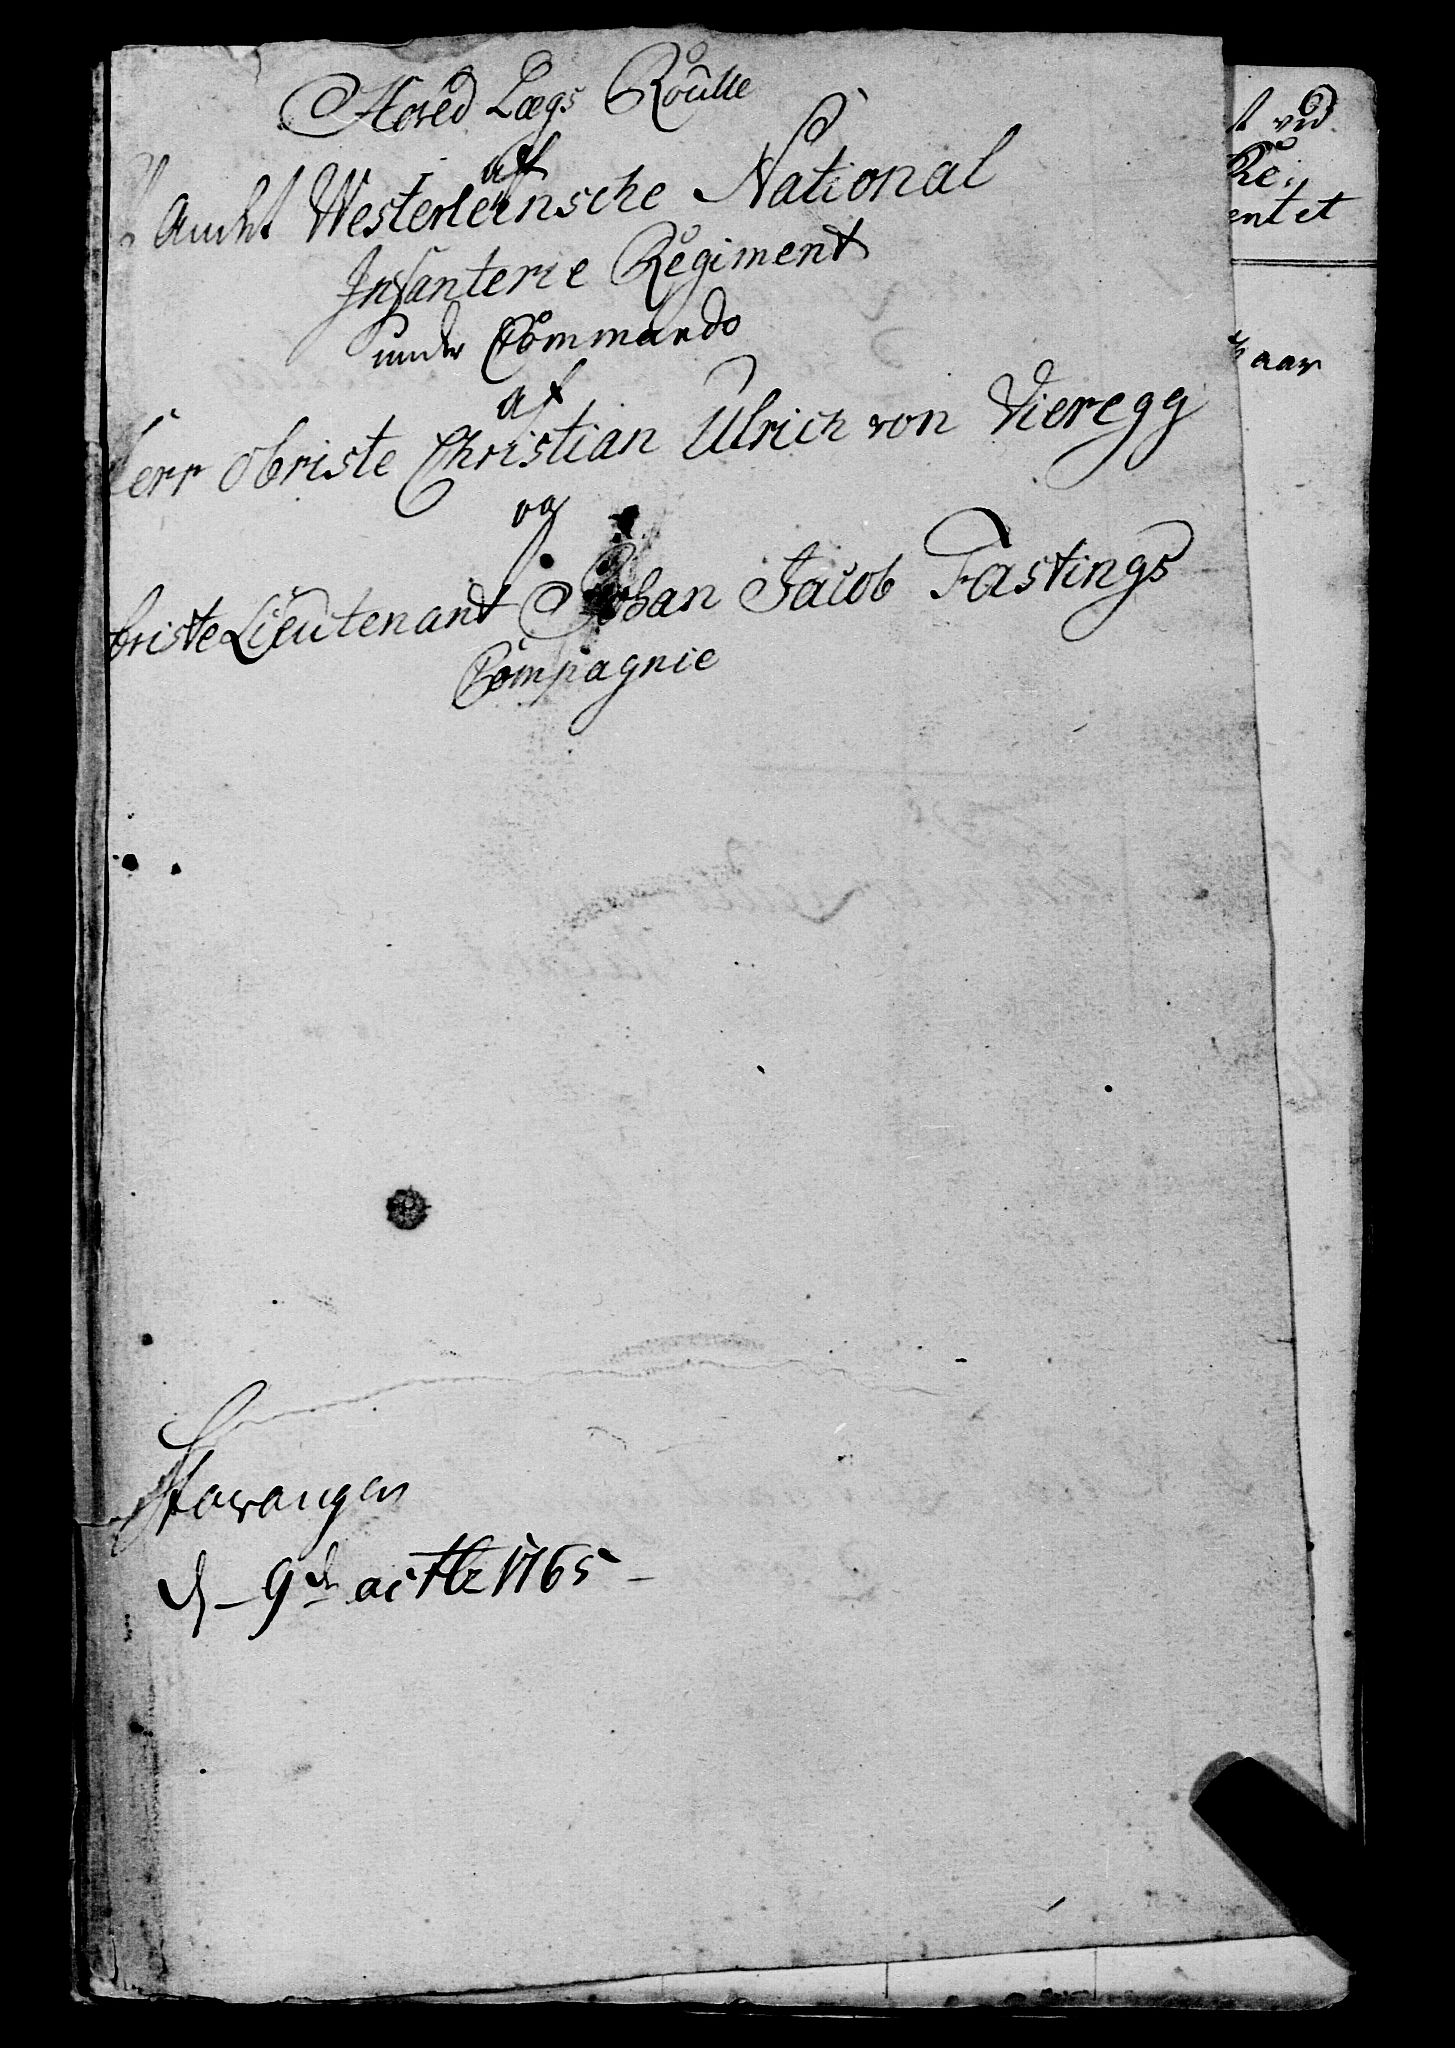 Hoved Lægs Roulle
af
Westerlehnsche National
Infanterie Regiment
under Commando
af
Herr Obriste Christian Ulrich von Vieregg
og
briste Lieutenant Johan Jacob Fastings
Compagnie
Stavanger
d. 9de octbr 1765
ved
Re:
entet
aar